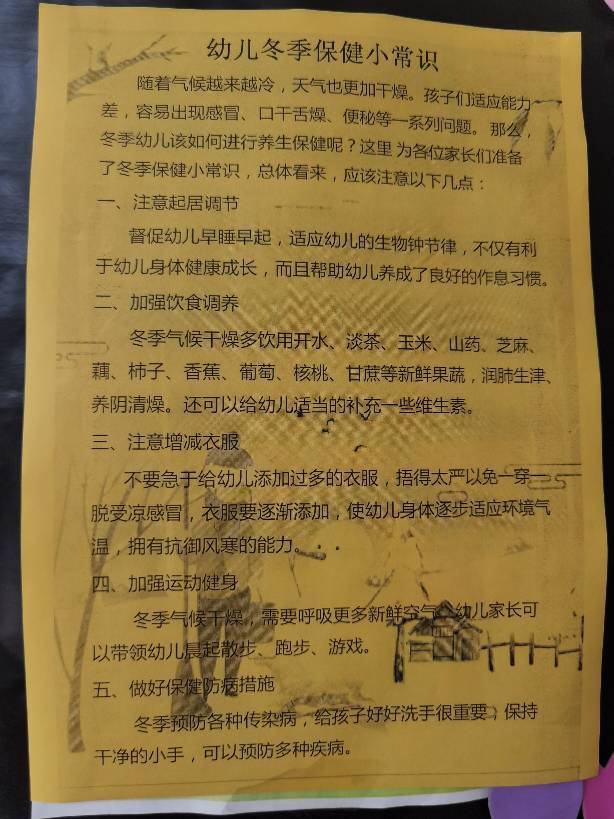 幼儿冬季保健小常识
随着气候越来越冷，天气也更加干燥。孩子们适应能力
差，容易出现感冒、口干舌燥、便秘等一系列问题。那么，
冬季幼儿该如何进行养生保健呢？这里 为各位家长们准备
了冬季保健小常识，总体看来，应该注意以下几点：
一、注意起居调节
督促幼儿早睡早起，适应幼儿的生物钟节律，不仅有利
于幼儿身体健康成长，而且帮助幼儿养成了良好的作息习惯。
二、加强饮食调养
冬季气候干燥多饮用开水、淡茶、玉米、山药、芝麻、
藕、柿子、香蕉、葡萄、核桃、甘蔗等新鲜果蔬，润肺生津、
养阴清燥。还可以给幼儿适当的补充一些维生素。
三、注意增减衣服
不要急于给幼儿添加过多的衣服，捂得太严以免一穿一
脱受凉感冒，衣服要逐渐添加，使幼儿身体逐步适应环境气
温，拥有抗御风寒的能力。
四、加强运动健身
冬季气候干燥，需要呼吸更多新鲜空气，幼儿家长可
以带领幼儿晨起散步、跑步、游戏。
五、做好保健防病措施
冬季预防各种传染病，给孩子好好洗手很重要，保持
干净的小手，可以预防多种疾病。